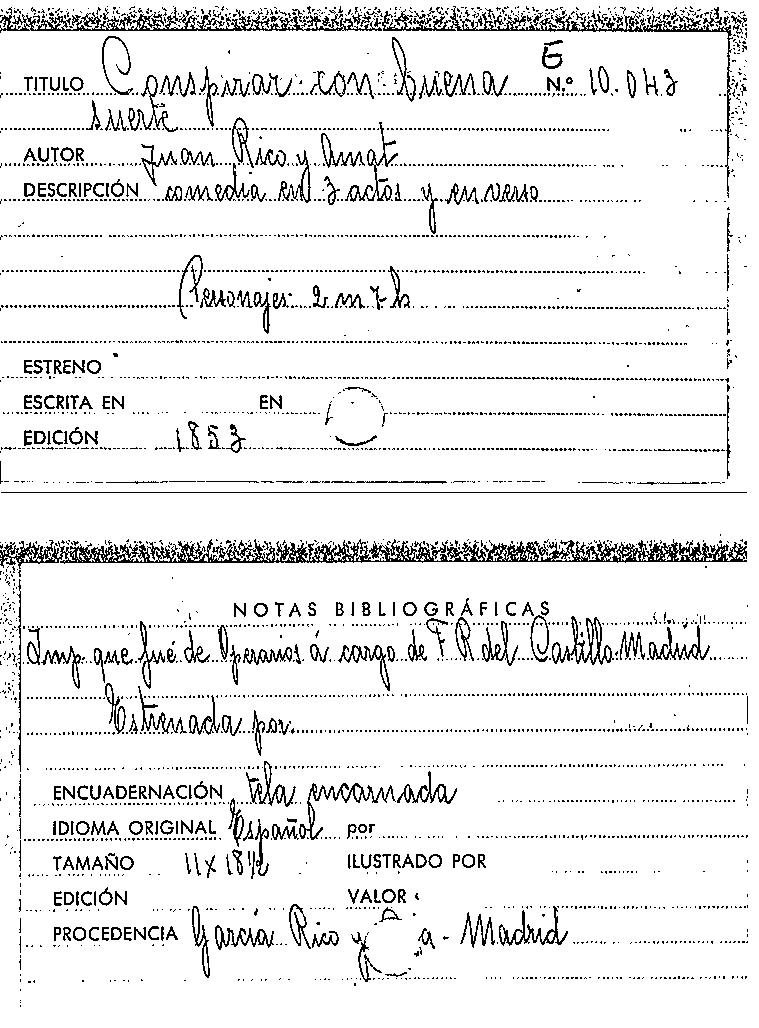 E
TITULO Conspirar con buena N.º 10.043
suerte
AUTOR Juan Rico y Amat
DESCRIPCIÓN comedia en 3 actos y en verso
(Personajes: 2 m 7 h
ESTRENO
ESCRITA EN EN
EDICIÓN 1853
NOTAS BIBLIOGRÁFICAS
Imp que fué de Operarios á cargo de F R del Castillo Madrid
Estrenada por
ENCUADERNACIÓN tela encarnada
IDIOMA ORIGINAL Español por
TAMAÑO 11 x 18 1/2 ILUSTRADO POR
EDICIÓN VALOR
PROCEDENCIA García Rico y - Madrid